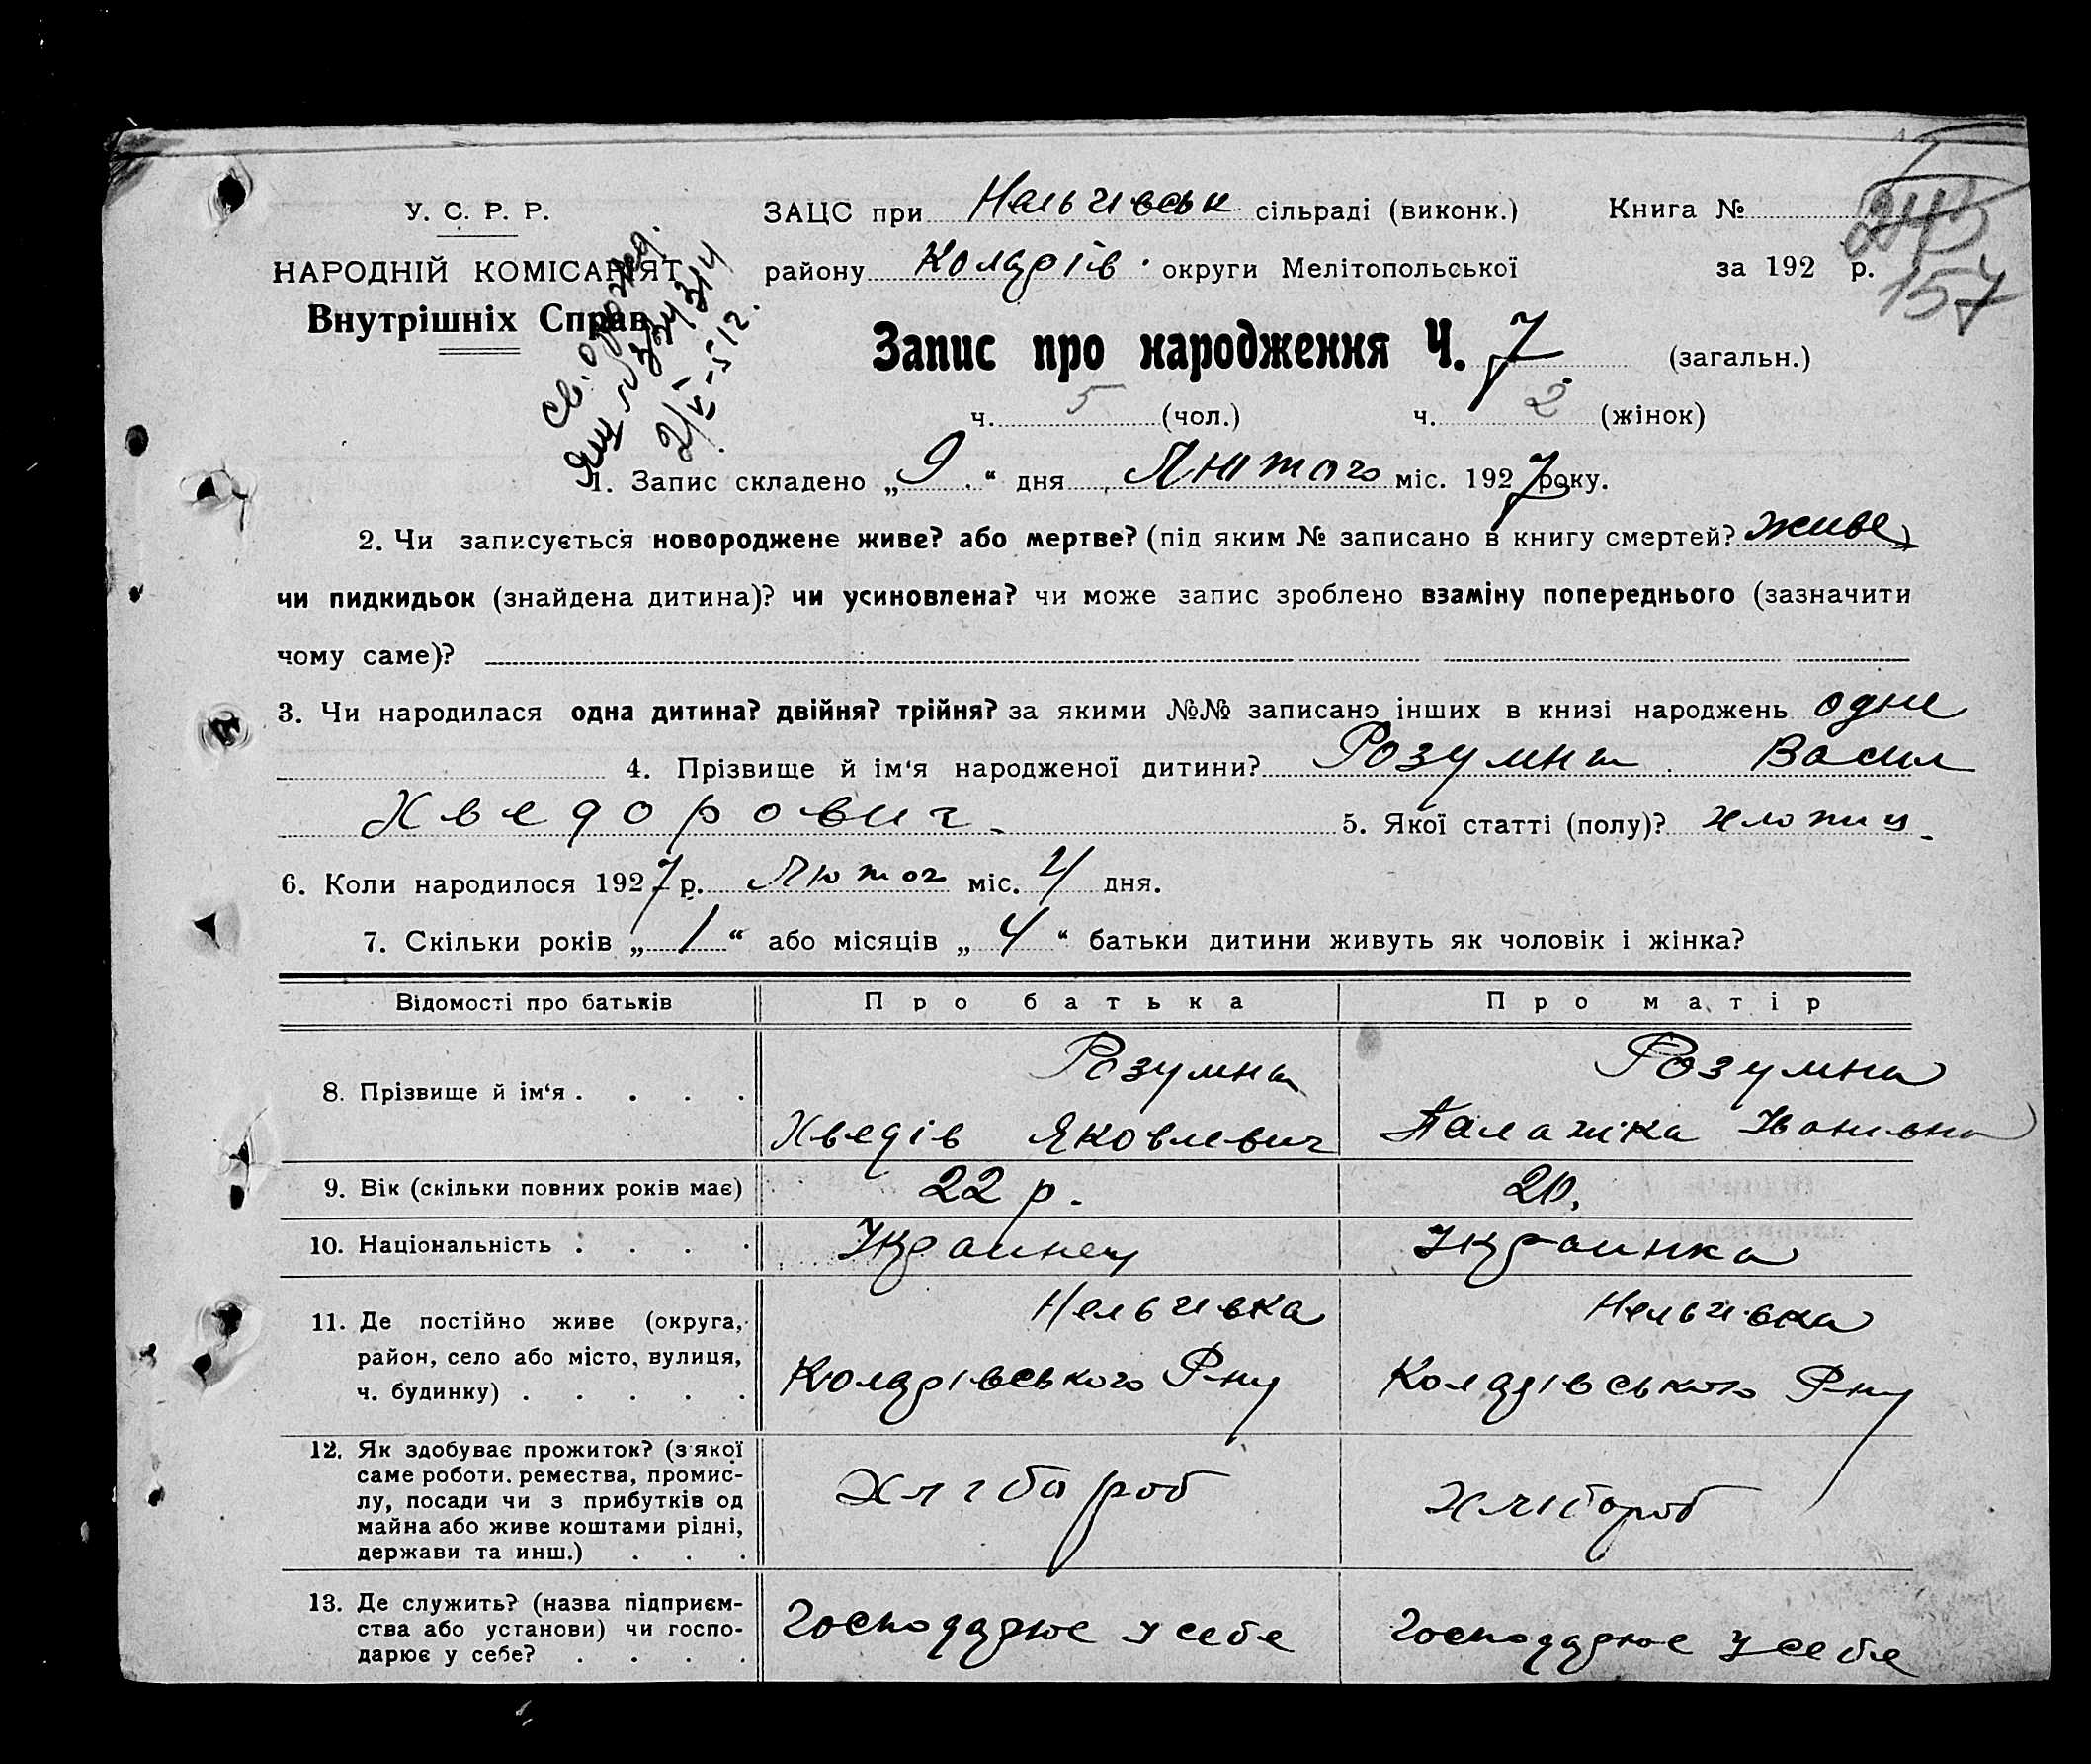 У. С. Р. Р.
НАРОДНІЙ КОМІСАРІЯТ
Внутрішніх Справ
ЗАЦС при Нельгівськ сільраді (виконк.)
району Колдрів. округи Мелітопольської
Книга №
за 192 р.
243
157
Запис про народження Ч. 7. (загальн.)
ч. 5 (чол.) ч. 2 (жінок)
1. Запис складено „9.“ дня Лютого міс. 1927 року.
2. Чи записується новороджене живе? або мертве? (під яким № записано в книгу смертей? живе)
чи пидкидьок (знайдена дитина)? чи усиновлена? чи може запис зроблено взаміну попереднього (зазначити
чому саме)?
3. Чи народилася одна дитина? двійня? трійня? за якими №№ записано інших в книзі народжень одне
4. Прізвище й ім‘я народженої дитини? Розумна Васил
Хведорович. 5. Якої статті (полу)? хлопиц
6. Коли народилося 1927 р. Лютог міс. 4 дня.
7. Скільки років „1“ або місяців „4“ батьки дитини живуть як чоловік і жінка?
Відомості про батьків Про батька Про матір
8. Прізвище й ім‘я . . . . Розумна Хведів Яковлевич Розумна Палажка Іванивна
9. Вік (скільки повних років має) 22 р. 20.
10. Національність . . . . Украинец Украинка
11. Де постійно живе (округа, Нельгивка Нельгивка
район, село або місто, вулиця, Колдрівського Р-ну Колдрівського Р-ну
ч. будинку) . . . . .
12. Як здобуває прожиток? (з якої
саме роботи. ремества, промис-
лу, посади чи з прибутків од Хлібороб хлібороб
майна або живе коштами рідні,
держави та инш.) . . .
13. Де служить? (назва підприєм-
ства або установи) чи госпо- Господарює у себе Господарює у себе
дарює у себе? . . . .